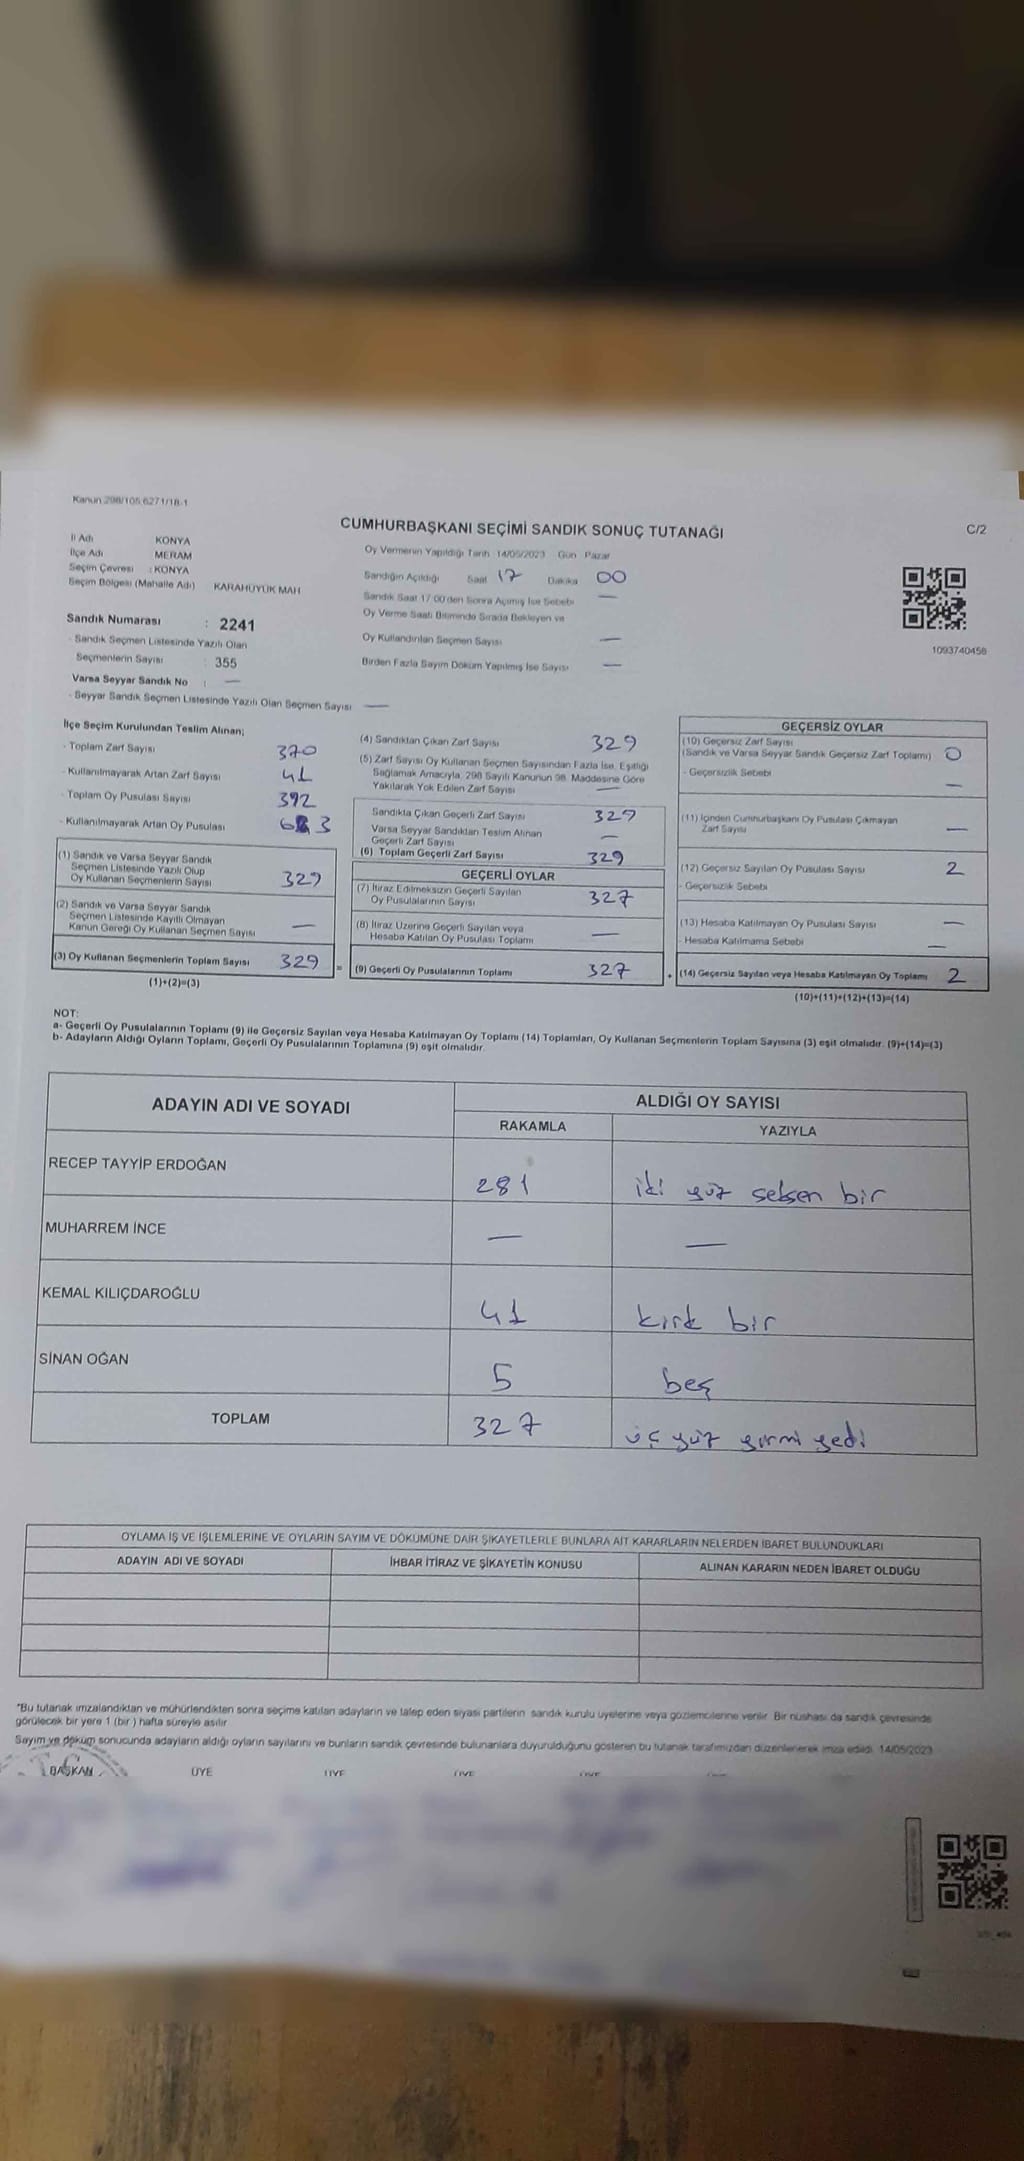 Kanun 298/105 6271/18-1
CUMHURBAŞKANI SEÇİMİ SANDIK SONUÇ TUTANAĞI
C/2
İl Adı KONYA
İlçe Adı MERAM
Seçim Çevresi : KONYA
Seçim Bölgesi (Mahalle Adı) KARAHÜYÜK MAH
Oy Vermenin Yapıldığı Tarih 14/05/2023 Gün Pazar
Sandığın Açıldığı Saat 17 Dakika 00
Sandık Saat 17:00'den Sonra Açılmış İse Sebebi —
Oy Verme Saati Bitiminde Sırada Bekleyen ve
Oy Kullandırılan Seçmen Sayısı —
Birden Fazla Sayım Döküm Yapılmış İse Sayısı —
1093740458
Sandık Numarası : 2241
- Sandık Seçmen Listesinde Yazılı Olan
Seçmenlerin Sayısı : 355
Varsa Seyyar Sandık No : —
- Seyyar Sandık Seçmen Listesinde Yazılı Olan Seçmen Sayısı —
İlçe Seçim Kurulundan Teslim Alınan;
- Toplam Zarf Sayısı 370
- Kullanılmayarak Artan Zarf Sayısı 41
- Toplam Oy Pusulası Sayısı 392
- Kullanılmayarak Artan Oy Pusulası
(1) Sandık ve Varsa Seyyar Sandık
Seçmen Listesinde Yazılı Olup
Oy Kullanan Seçmenlerin Sayısı 329
(2) Sandık ve Varsa Seyyar Sandık
Seçmen Listesinde Kayıtlı Olmayan
Kanun Gereği Oy Kullanan Seçmen Sayısı —
(3) Oy Kullanan Seçmenlerin Toplam Sayısı 329
(1)+(2)=(3)
(4) Sandıktan Çıkan Zarf Sayısı 329
(5) Zarf Sayısı Oy Kullanan Seçmen Sayısından Fazla İse, Eşitliği
Sağlamak Amacıyla, 298 Sayılı Kanunun 98. Maddesine Göre
Yakılarak Yok Edilen Zarf Sayısı —
Sandıkta Çıkan Geçerli Zarf Sayısı 329
Varsa Seyyar Sandıktan Teslim Alınan
Geçerli Zarf Sayısı —
(6) Toplam Geçerli Zarf Sayısı 329
GEÇERLİ OYLAR
(7) İtiraz Edilmeksizin Geçerli Sayılan
Oy Pusulalarının Sayısı 327
(8) İtiraz Üzerine Geçerli Sayılan veya
Hesaba Katılan Oy Pusulası Toplamı —
= (9) Geçerli Oy Pusulalarının Toplamı 327
GEÇERSİZ OYLAR
(10) Geçersiz Zarf Sayısı
(Sandık ve Varsa Seyyar Sandık Geçersiz Zarf Toplamı) 0
- Geçersizlik Sebebi —
(11) İçinden Cumhurbaşkanı Oy Pusulası Çıkmayan
Zarf Sayısı —
(12) Geçersiz Sayılan Oy Pusulası Sayısı 2
- Geçersizlik Sebebi
(13) Hesaba Katılmayan Oy Pusulası Sayısı —
- Hesaba Katılmama Sebebi —
+ (14) Geçersiz Sayılan veya Hesaba Katılmayan Oy Toplamı 2
(10)+(11)+(12)+(13)=(14)
NOT:
a- Geçerli Oy Pusulalarının Toplamı (9) ile Geçersiz Sayılan veya Hesaba Katılmayan Oy Toplamı (14) Toplamları, Oy Kullanan Seçmenlerin Toplam Sayısına (3) eşit olmalıdır. (9)+(14)=(3)
b- Adayların Aldığı Oyların Toplamı, Geçerli Oy Pusulalarının Toplamına (9) eşit olmalıdır.
ADAYIN ADI VE SOYADI
ALDIĞI OY SAYISI
RAKAMLA YAZIYLA
RECEP TAYYİP ERDOĞAN 281 iki yüz seksen bir
MUHARREM İNCE — —
KEMAL KILIÇDAROĞLU 41 kırk bir
SİNAN OĞAN 5 beş
TOPLAM 327 üç yüz yirmi yedi
OYLAMA İŞ VE İŞLEMLERİNE VE OYLARIN SAYIM VE DÖKÜMÜNE DAİR ŞİKAYETLERLE BUNLARA AİT KARARLARIN NELERDEN İBARET BULUNDUKLARI
ADAYIN ADI VE SOYADI İHBAR İTİRAZ VE ŞİKAYETİN KONUSU ALINAN KARARIN NEDEN İBARET OLDUĞU
*Bu tutanak imzalandıktan ve mühürlendikten sonra seçime katılan adayların ve talep eden siyasi partilerin sandık kurulu üyelerine veya gözlemcilerine verilir. Bir nüshası da sandık çevresinde
görülecek bir yere 1 (bir) hafta süreyle asılır
Sayım ve döküm sonucunda adayların aldığı oyların sayılarını ve bunların sandık çevresinde bulunanlara duyurulduğunu gösteren bu tutanak tarafımızdan düzenlenerek imza edildi. 14/05/2023
BAŞKAN ÜYE ÜYE ÜYE ÜYE